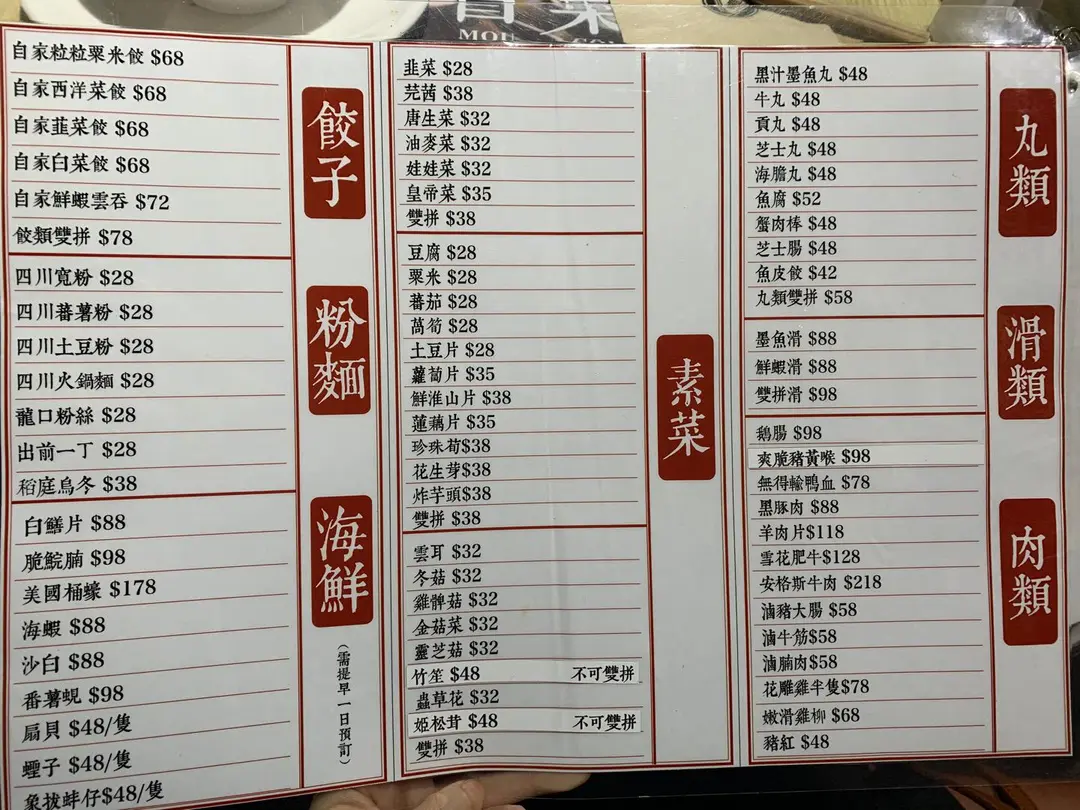 MOU
自家粒粒粟米餃 $68
自家西洋菜餃 $68
自家韭菜餃 $68
自家白菜餃 $68
自家鮮蝦雲吞 $72
餃類雙拼 $78
餃子
四川寬粉 $28
四川蕃薯粉 $28
四川土豆粉 $28
四川火鍋麵 $28
龍口粉絲 $28
出前一丁 $28
稻庭烏冬 $38
粉麵
白鱔片 $88
脆鯇腩 $98
美國桶蠔 $178
海蝦 $88
沙白 $88
番薯蜆 $98
扇貝 $48/隻
蟶子 $48/隻
象拔蚌仔$48/隻
海鮮
(需提早一日預訂)
韭菜 $28
芫茜 $38
唐生菜 $32
油麥菜 $32
娃娃菜 $32
皇帝菜 $35
雙拼 $38
豆腐 $28
粟米 $28
蕃茄 $28
萵筍 $28
土豆片 $28
蘿蔔片 $35
鮮淮山片 $38
蓮藕片 $35
珍珠荀$38
花生芽$38
炸芋頭$38
雙拼 $38
雲耳 $32
冬菇 $32
雞髀菇 $32
金菇菜 $32
靈芝菇 $32
竹笙 $48 不可雙拼
蟲草花 $32
姬松茸 $48 不可雙拼
雙拼 $38
素菜
黑汁墨魚丸 $48
牛丸 $48
貢丸 $48
芝士丸 $48
海膽丸 $48
魚腐 $52
蟹肉棒 $48
芝士腸 $48
魚皮餃 $42
丸類雙拼 $58
丸類
墨魚滑 $88
鮮蝦滑 $88
雙拼滑 $98
滑類
鵝腸 $98
爽脆豬黃喉 $98
無得輸鴨血 $78
黑豚肉 $88
羊肉片$118
雪花肥牛$128
安格斯牛肉 $218
滷豬大腸 $58
滷牛筋$58
滷腩肉$58
花雕雞半隻$78
嫩滑雞柳 $68
豬紅 $48
肉類